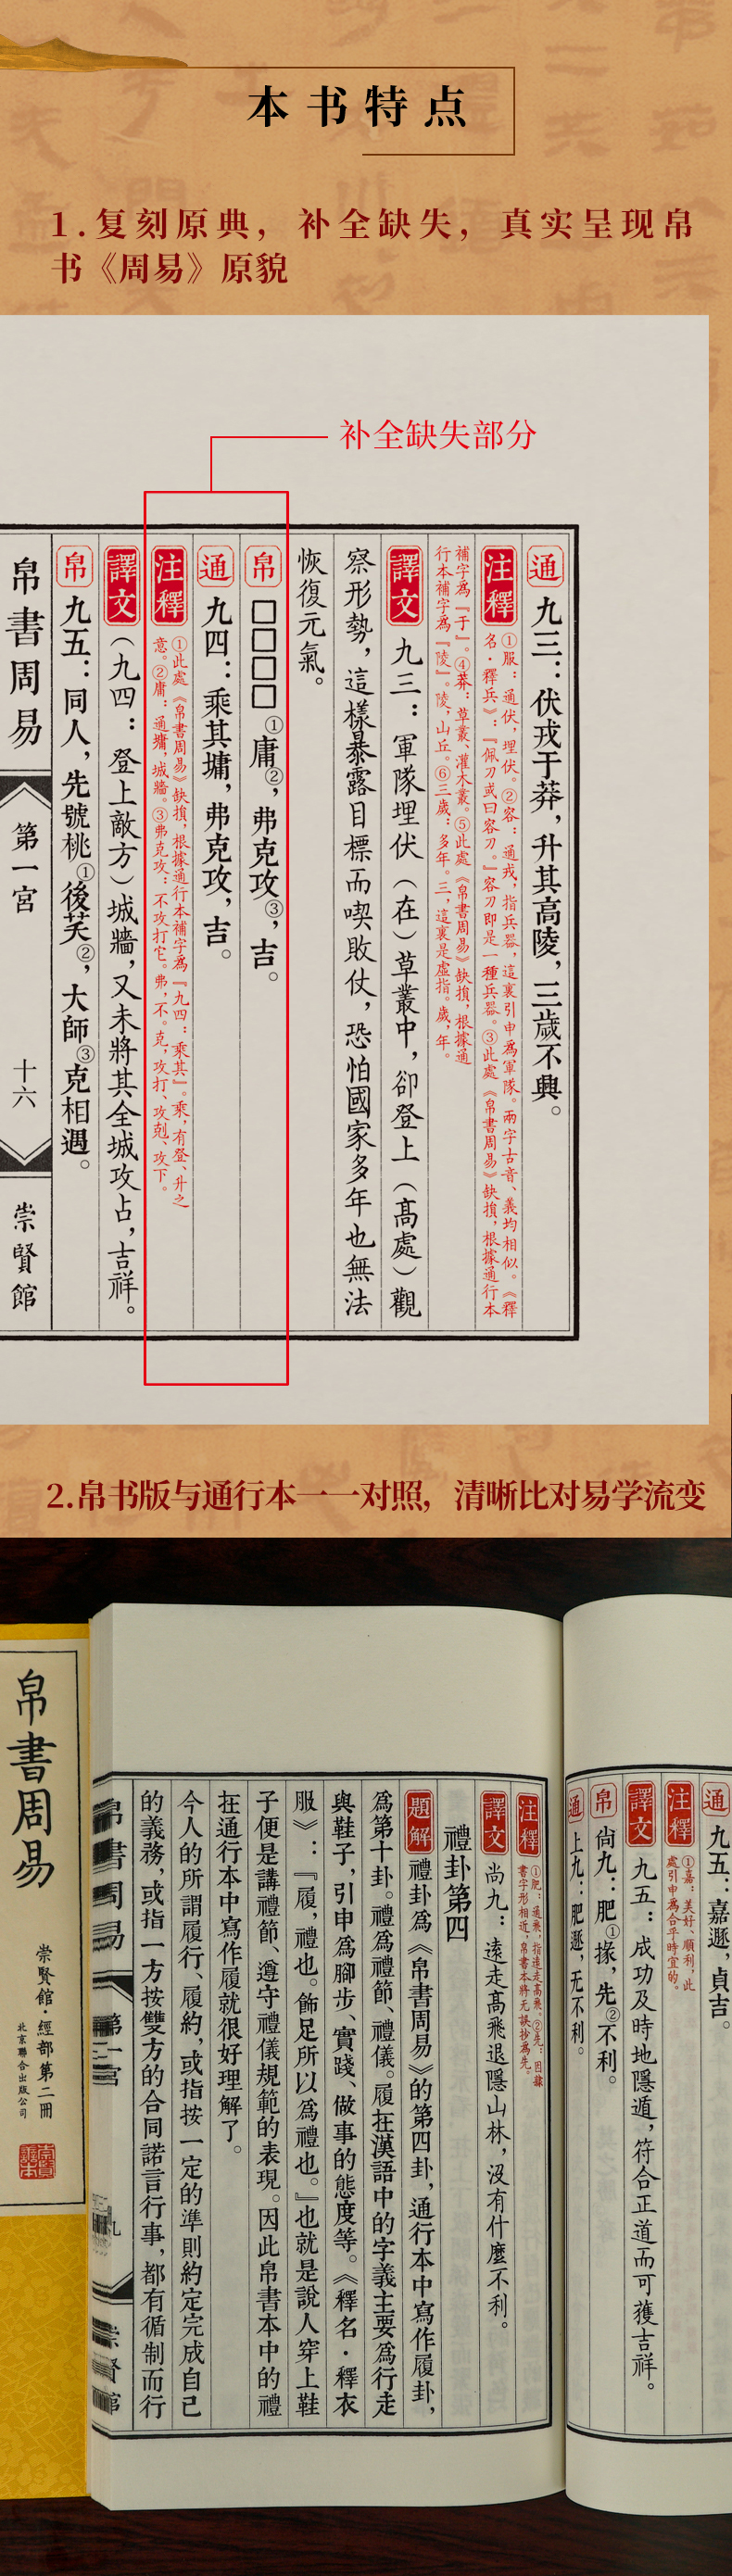 本书特点
1.复刻原典，补全缺失，真实呈现帛
书《周易》原貌
补全缺失部分
通 九三：伏戎于莽，升其高陵，三歲不興。
注釋 ①服：通伏，埋伏。②容：通戎，指兵器，這裏引申爲軍隊。兩字古音、義均相似。《釋
名·釋兵》：『佩刀或曰容刀。』容刀即是一種兵器。③此處《帛書周易》缺損，根據通行本
補字爲『于』。④莽：草叢、灌木叢。⑤此處《帛書周易》缺損，根據通
行本補字爲『陵』。陵，山丘。⑥三歲：多年。三，這裏是虛指。歲，年。
譯文 九三：軍隊埋伏（在）草叢中，卻登上（高處）觀
察形勢，這樣暴露目標而喫敗仗，恐怕國家多年也無法
恢復元氣。
帛 □□□□①庸②，弗克攻③，吉。
通 九四：乘其墉，弗克攻，吉。
注釋 ①此處《帛書周易》缺損，根據通行本補字爲『九四：乘其』。乘，有登、升之
意。②庸：通墉，城牆。③弗克攻：不攻打它。弗，不。克，攻打、攻剋、攻下。
譯文 （九四：登上敵方）城牆，又未將其全城攻占，吉祥。
帛 九五：同人，先號桃①後芺②，大師③克相遇。
帛書周易 第一宮 十六 崇賢館
2.帛书版与通行本一一对照，清晰比对易学流变
通 九五：嘉遯，貞吉。
注釋 ①嘉：美好、順利，此
處引申爲合乎時宜的。
譯文 九五：成功及時地隱遁，符合正道而可獲吉祥。
帛 尚九：肥①掾，先②不利。
通 上九：肥遯，无不利。
注釋 ①肥：通飛，指遠走高飛。②先：因隸
書字形相近，帛書本將无誤抄爲先。
譯文 尚九：遠走高飛退隱山林，沒有什麼不利。
禮卦第四
題解 禮卦爲《帛書周易》的第四卦，通行本中寫作履卦，
爲第十卦。禮爲禮節、禮儀。履在漢語中的字義主要爲行走
與鞋子，引申爲腳步、實踐、做事的態度等。《釋名·釋衣
服》：『履，禮也。飾足所以爲禮也。』也就是說人穿上鞋
子便是講禮節、遵守禮儀規範的表現。因此帛書本中的禮
在通行本中寫作履就很好理解了。
今人的所謂履行、履約，或指按一定的準則約定完成自己
的義務，或指一方按雙方的合同諾言行事，都有循制而行
帛書周易 第一宮 九 崇賢館
帛書周易
崇賢館·經部第二冊
北京聯合出版公司